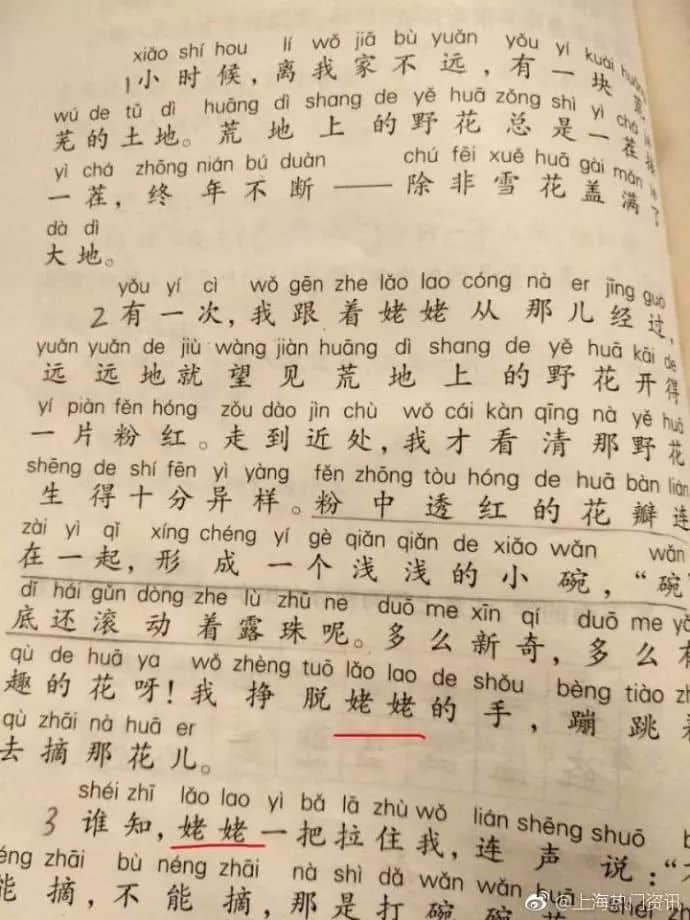 xiǎo shí hou lí wǒ jiā bù yuǎn yǒu yí kuài huāng
1小时候，离我家不远，有一块荒
wú de tǔ dì huāng dì shang de yě huā zǒng shì yì chá
芜的土地。荒地上的野花总是一茬接
yì chá zhōng nián bú duàn chú fēi xuě huā gài mǎn
一茬，终年不断——除非雪花盖满了
dà dì
大地。
yǒu yí cì wǒ gēn zhe lǎo lao cóng nà er jīng guò
2有一次，我跟着姥姥从那儿经过，
yuǎn yuǎn de jiù wàng jiàn huāng dì shang de yě huā kāi de
远远地就望见荒地上的野花开得
yí piàn fěn hóng zǒu dào jìn chù wǒ cái kàn qīng nà yě huā
一片粉红。走到近处，我才看清那野花
shēng de shí fēn yì yàng fěn zhōng tòu hóng de huā bàn lián
生得十分异样。粉中透红的花瓣连
zài yì qǐ xíng chéng yí gè qiǎn qiǎn de xiǎo wǎn wǎn
在一起，形成一个浅浅的小碗，“碗”
dǐ hái gǔn dòng zhe lù zhū ne duō me xīn qí duō me yǒu
底还滚动着露珠呢。多么新奇，多么有
qù de huā ya wǒ zhèng tuō lǎo lao de shǒu bèng tiào zhe
趣的花呀！我挣脱姥姥的手，蹦跳着
qù zhāi nà huā er
去摘那花儿。
shéi zhī lǎo lao yì bǎ lā zhù wǒ lián shēng shuō
3谁知，姥姥一把拉住我，连声说：“不
néng zhāi bù néng zhāi nà shì dǎ wǎn wǎn huā
能摘，不能摘，那是打碗碗花
@上海热门资讯